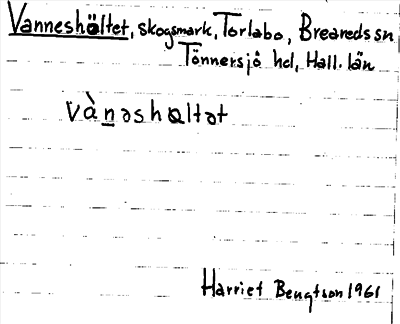 Vanneshöltet, skogsmark, Torlabo, Breareds sn
Tönnersjö hd, Hall. län
vànəshɵltət
Harriet Bengtson 1961